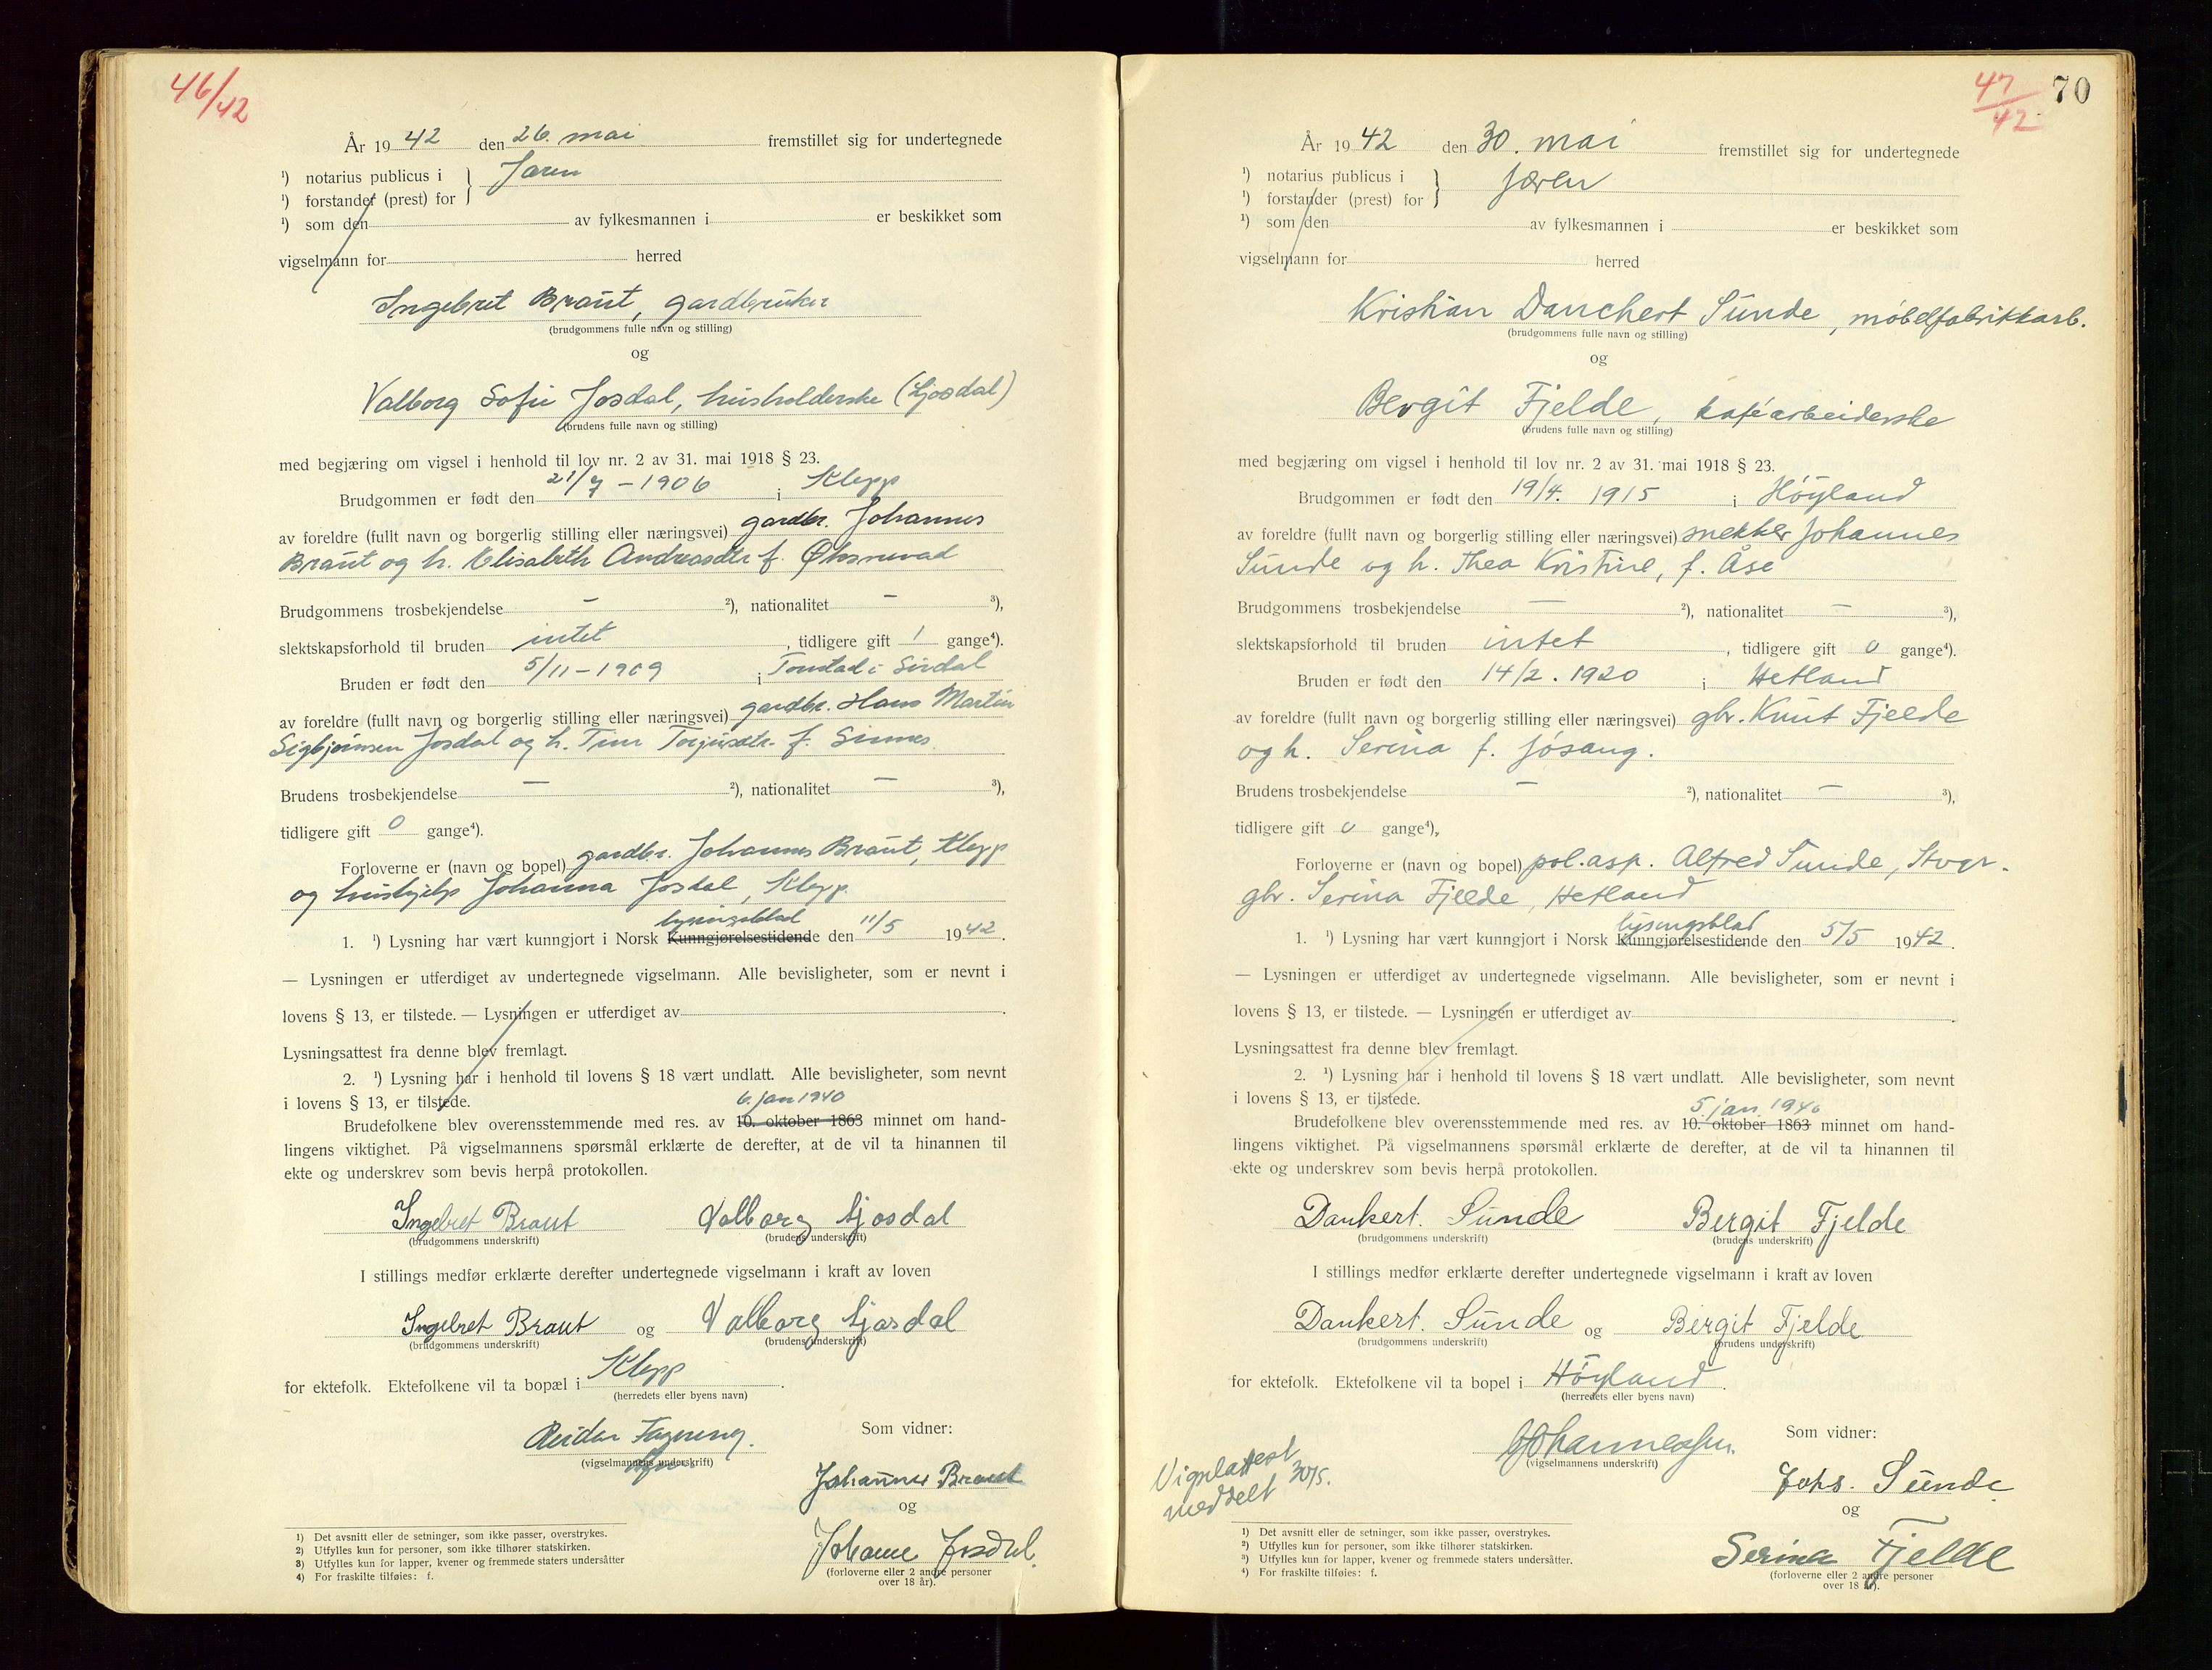 46/42
År 1942 den 26. mai fremstillet sig for undertegnede
¹) notarius publicus i } Jæren
¹) forstander (prest) for
¹) som den av fylkesmannen i er beskikket som
vigselmann for herred
Ingebret Braut, gardbruker
(brudgommens fulle navn og stilling)
og
Valborg Sofie Josdal, husholderske (Ljosdal)
(brudens fulle navn og stilling)
med begjæring om vigsel i henhold til lov nr. 2 av 31. mai 1918 § 23.
Brudgommen er født den 21/7 – 1906 i Klepp
av foreldre (fullt navn og borgerlig stilling eller næringsvei) gardbr. Johannes
Braut og h. Elisabeth Andreasdtr f. Øksnevad
Brudgommens trosbekjendelse – ²), nationalitet – ³),
slektskapsforhold til bruden intet, tidligere gift 1 gange⁴).
Bruden er født den 5/11 – 1909 i Tonstad i Sirdal
av foreldre (fullt navn og borgerlig stilling eller næringsvei) gardbr. Hans Martin
Sigbjørnsen Josdal og h. Tine Torjusdtr. f. Sinnes
Brudens trosbekjendelse – ²), nationalitet – ³),
tidligere gift 0 gange⁴).
Forloverne er (navn og bopel) gardbr. Johannes Braut, Klepp
og hushjelp Johanna Josdal, Klepp.
lysingsblad
1. ¹) Lysning har vært kunngjort i Norsk Kunngjørelsestidende den 11/5 1942.
— Lysningen er utferdiget av undertegnede vigselmann. Alle bevisligheter, som er nevnt i
lovens § 13, er tilstede. — Lysningen er utferdiget av
Lysningsattest fra denne blev fremlagt.
2. ¹) Lysning har i henhold til lovens § 18 vært undlatt. Alle bevisligheter, som nevnt
i lovens § 13, er tilstede.
6. jan 1940
Brudefolkene blev overensstemmende med res. av 10. oktober 1863 minnet om hand-
lingens viktighet. På vigselmannens spørsmål erklærte de derefter, at de vil ta hinannen til
ekte og underskrev som bevis herpå protokollen.
Ingebret Braut Valborg Ljosdal
(brudgommens underskrift) (brudens underskrift)
I stillings medfør erklærte derefter undertegnede vigselmann i kraft av loven
Ingebret Braut og Valborg Ljosdal
(brudgommens underskrift) (brudens underskrift)
for ektefolk. Ektefolkene vil ta bopæl i Klepp.
(herredets eller byens navn)
Reidar
(vigselmannens underskrift)
Som vidner:
Johannes Braut
og
Johanne Josdal.
(forloverne eller 2 andre personer
over 18 år).
1) Det avsnitt eller de setninger, som ikke passer, overstrykes.
2) Utfylles kun for personer, som ikke tilhører statskirken.
3) Utfylles kun for lapper, kvener og fremmede staters undersåtter
4) For fraskilte tilføies: f.
47/42 70
År 1942 den 30. mai fremstillet sig for undertegnede
¹) notarius publicus i } Jæren
¹) forstander (prest) for
¹) som den av fylkesmannen i er beskikket som
vigselmann for herred
Kristian Danchert Sunde, møbelfabrikkarb.
(brudgommens fulle navn og stilling)
og
Bergit Fjelde, kaféarbeiderske
(brudens fulle navn og stilling)
med begjæring om vigsel i henhold til lov nr. 2 av 31. mai 1918 § 23.
Brudgommen er født den 19/4. 1915 i Høyland
av foreldre (fullt navn og borgerlig stilling eller næringsvei) snekker Johannes
Sunde og h. Thea Kristine, f. Åse
Brudgommens trosbekjendelse — ²), nationalitet — ³),
slektskapsforhold til bruden intet, tidligere gift 0 gange⁴).
Bruden er født den 14/2. 1920 i Hetland
av foreldre (fullt navn og borgerlig stilling eller næringsvei) gbr. Knut Fjelde
og h. Serina f. Jøsang.
Brudens trosbekjendelse — ²), nationalitet — ³),
tidligere gift 0 gange⁴).
Forloverne er (navn og bopel) pol.asp. Alfred Sunde, Stvgr.
gbr. Serina Fjelde, Hetland
lysingsblad
1. ¹) Lysning har vært kunngjort i Norsk Kunngjørelsestidende den 5/5 1942.
— Lysningen er utferdiget av undertegnede vigselmann. Alle bevisligheter, som er nevnt i
lovens § 13, er tilstede. — Lysningen er utferdiget av
Lysningsattest fra denne blev fremlagt.
2. ¹) Lysning har i henhold til lovens § 18 vært undlatt. Alle bevisligheter, som nevnt
i lovens § 13, er tilstede.
5. jan. 1940
Brudefolkene blev overensstemmende med res. av 10. oktober 1863 minnet om hand-
lingens viktighet. På vigselmannens spørsmål erklærte de derefter, at de vil ta hinannen til
ekte og underskrev som bevis herpå protokollen.
Dankert. Sunde Bergit Fjelde
(brudgommens underskrift) (brudens underskrift)
I stillings medfør erklærte derefter undertegnede vigselmann i kraft av loven
Dankert. Sunde og Bergit Fjelde
(brudgommens underskrift) (brudens underskrift)
for ektefolk. Ektefolkene vil ta bopel i Høyland.
(herredets eller byens navn)
Johannessen.
(vigselmannens underskrift)
Vigselattest
meddelt 30/5.
Som vidner:
Johs. Sunde
og
Serina Fjelde
(forloverne eller 2 andre personer
over 18 år).
1) Det avsnitt eller de setninger, som ikke passer, overstrykes.
2) Utfylles kun for personer, som ikke tilhører statskirken.
3) Utfylles kun for lapper, kvener og fremmede staters undersåtter.
4) For fraskilte tilføies: f.